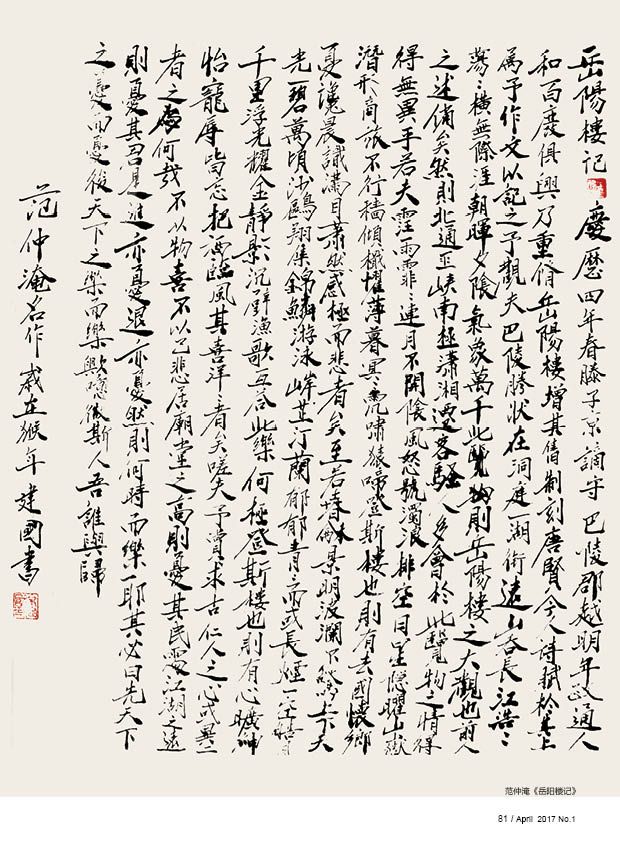 岳陽樓記 慶歷四年春滕子京謫守巴陵郡越明年政通人
和百廢俱興乃重脩岳陽樓增其舊制刻唐賢今人詩賦於其上
為予作文以記之予觀夫巴陵勝狀在洞庭一湖銜遠山吞長江浩〻
蕩〻橫無際涯朝暉夕陰氣象萬千此則岳陽樓之大觀也前人
之述備矣然則北通巫峽南極瀟湘遷客騷人多會於此覽物之情得
得無異乎若夫霪雨霏〻連月不開陰風怒號濁浪排空日星隱曜山嶽
潛形商旅不行檣傾楫摧薄暮冥〻虎嘯猿啼登斯樓也則有去國懷鄉
憂讒畏譏滿目蕭然感極而悲者矣至若春和景明波瀾不驚上下天
光一碧萬頃沙鷗翔集錦鱗游泳岸芷汀蘭郁郁青〻而或長煙一空皓月
千里浮光耀金靜影沉璧漁歌互答此樂何極登斯樓也則有心曠神
怡寵辱皆忘把酒臨風其喜洋〻者矣嗟夫予嘗求古仁人之心或異二
者之為何哉不以物喜不以己悲居廟堂之高則憂其民處江湖之遠
則憂其君是進亦憂退亦憂然則何時而樂耶其必曰先天下
之憂而憂後天下之樂而樂歟噫微斯人吾誰與歸
范仲淹名作歲在猴年建國書
范仲淹《岳阳楼记》
81 / April 2017 No.1